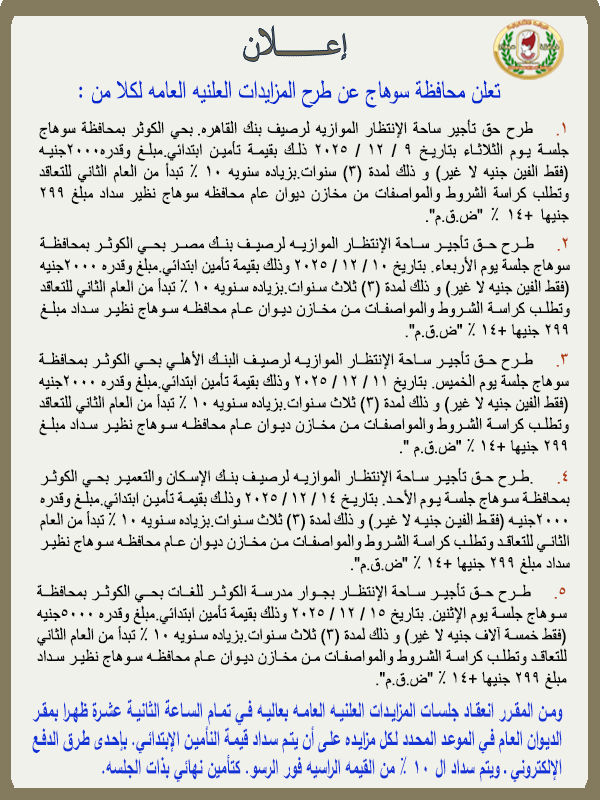 إعـــــلان
تعلن محافظة سوهاج عن طرح المزايدات العلنيه العامه لكلا من :
١. طرح حق تأجير ساحة الإنتظار الموازيه لرصيف بنك القاهره. بحي الكوثر بمحافظة سوهاج
جلسة يوم الثلاثاء بتاريخ ٩ / ١٢ / ٢٠٢٥ ذلك بقيمة تأمين ابتدائي.مبلغ وقدره٢٠٠٠جنيه
(فقط الفين جنيه لا غير) و ذلك لمدة (٣) سنوات.بزياده سنويه ١٠ ٪ تبدأ من العام الثاني للتعاقد
وتطلب كراسة الشروط والمواصفات من مخازن ديوان عام محافظه سوهاج نظير سداد مبلغ ٢٩٩
جنيها +١٤ ٪ "ض.ق.م".
٢. طرح حق تأجير ساحة الإنتظار الموازيه لرصيف بنك مصر بحي الكوثر بمحافظة
سوهاج جلسة يوم الأربعاء. بتاريخ ١٠ / ١٢ / ٢٠٢٥ وذلك بقيمة تأمين ابتدائي.مبلغ وقدره ٢٠٠٠جنيه
(فقط الفين جنيه لا غير) و ذلك لمدة (٣) ثلاث سنوات.بزياده سنويه ١٠ ٪ تبدأ من العام الثاني للتعاقد
وتطلب كراسة الشروط والمواصفات من مخازن ديوان عام محافظه سوهاج نظير سداد مبلغ
٢٩٩ جنيها +١٤ ٪ "ض.ق.م".
٣. طرح حق تأجير ساحة الإنتظار الموازيه لرصيف البنك الأهلي بحي الكوثر بمحافظة
سوهاج جلسة يوم الخميس. بتاريخ ١١ / ١٢ / ٢٠٢٥ وذلك بقيمة تأمين ابتدائي.مبلغ وقدره ٢٠٠٠جنيه
(فقط الفين جنيه لا غير) و ذلك لمدة (٣) ثلاث سنوات.بزياده سنويه ١٠ ٪ تبدأ من العام الثاني للتعاقد
وتطلب كراسة الشروط والمواصفات من مخازن ديوان عام محافظه سوهاج نظير سداد مبلغ
٢٩٩ جنيها +١٤ ٪ "ض.ق.م ".
٤. .طرح حق تأجير ساحة الإنتظار الموازيه لرصيف بنك الإسكان والتعمير بحي الكوثر
بمحافظة سوهاج جلسة يوم الأحد. بتاريخ ١٤ / ١٢ / ٢٠٢٥ وذلك بقيمة تأمين ابتدائي.مبلغ وقدره
٢٠٠٠جنيه (فقط الفين جنيه لا غير) و ذلك لمدة (٣) ثلاث سنوات.بزياده سنويه ١٠ ٪ تبدأ من العام
الثاني للتعاقد وتطلب كراسة الشروط والمواصفات من مخازن ديوان عام محافظه سوهاج نظير
سداد مبلغ ٢٩٩ جنيها +١٤ ٪ "ض.ق.م".
٥. طرح حق تأجير ساحة الإنتظار بجوار مدرسة الكوثر للغات بحي الكوثر بمحافظة
سوهاج جلسة يوم الإثنين. بتاريخ ١٥ / ١٢ / ٢٠٢٥ وذلك بقيمة تأمين ابتدائي.مبلغ وقدره ٥٠٠٠جنيه
(فقط خمسة آلاف جنيه لا غير) و ذلك لمدة (٣) ثلاث سنوات.بزياده سنويه ١٠ ٪ تبدأ من العام الثاني
للتعاقد وتطلب كراسة الشروط والمواصفات من مخازن ديوان عام محافظه سوهاج نظير سداد
مبلغ ٢٩٩ جنيها +١٤ ٪ "ض.ق.م".
ومن المقرر انعقاد جلسات المزايدات العلنيه العامه بعاليه في تمام الساعة الثانية عشرة ظهرا بمقر
الديوان العام في الموعد المحدد لكل مزايده على أن يتم سداد قيمة التأمين الإبتدائي. بإحدى طرق الدفع
الإلكتروني . ويتم سداد ال ١٠ ٪ من القيمه الراسيه فور الرسو. كتأمين نهائي بذات الجلسه.